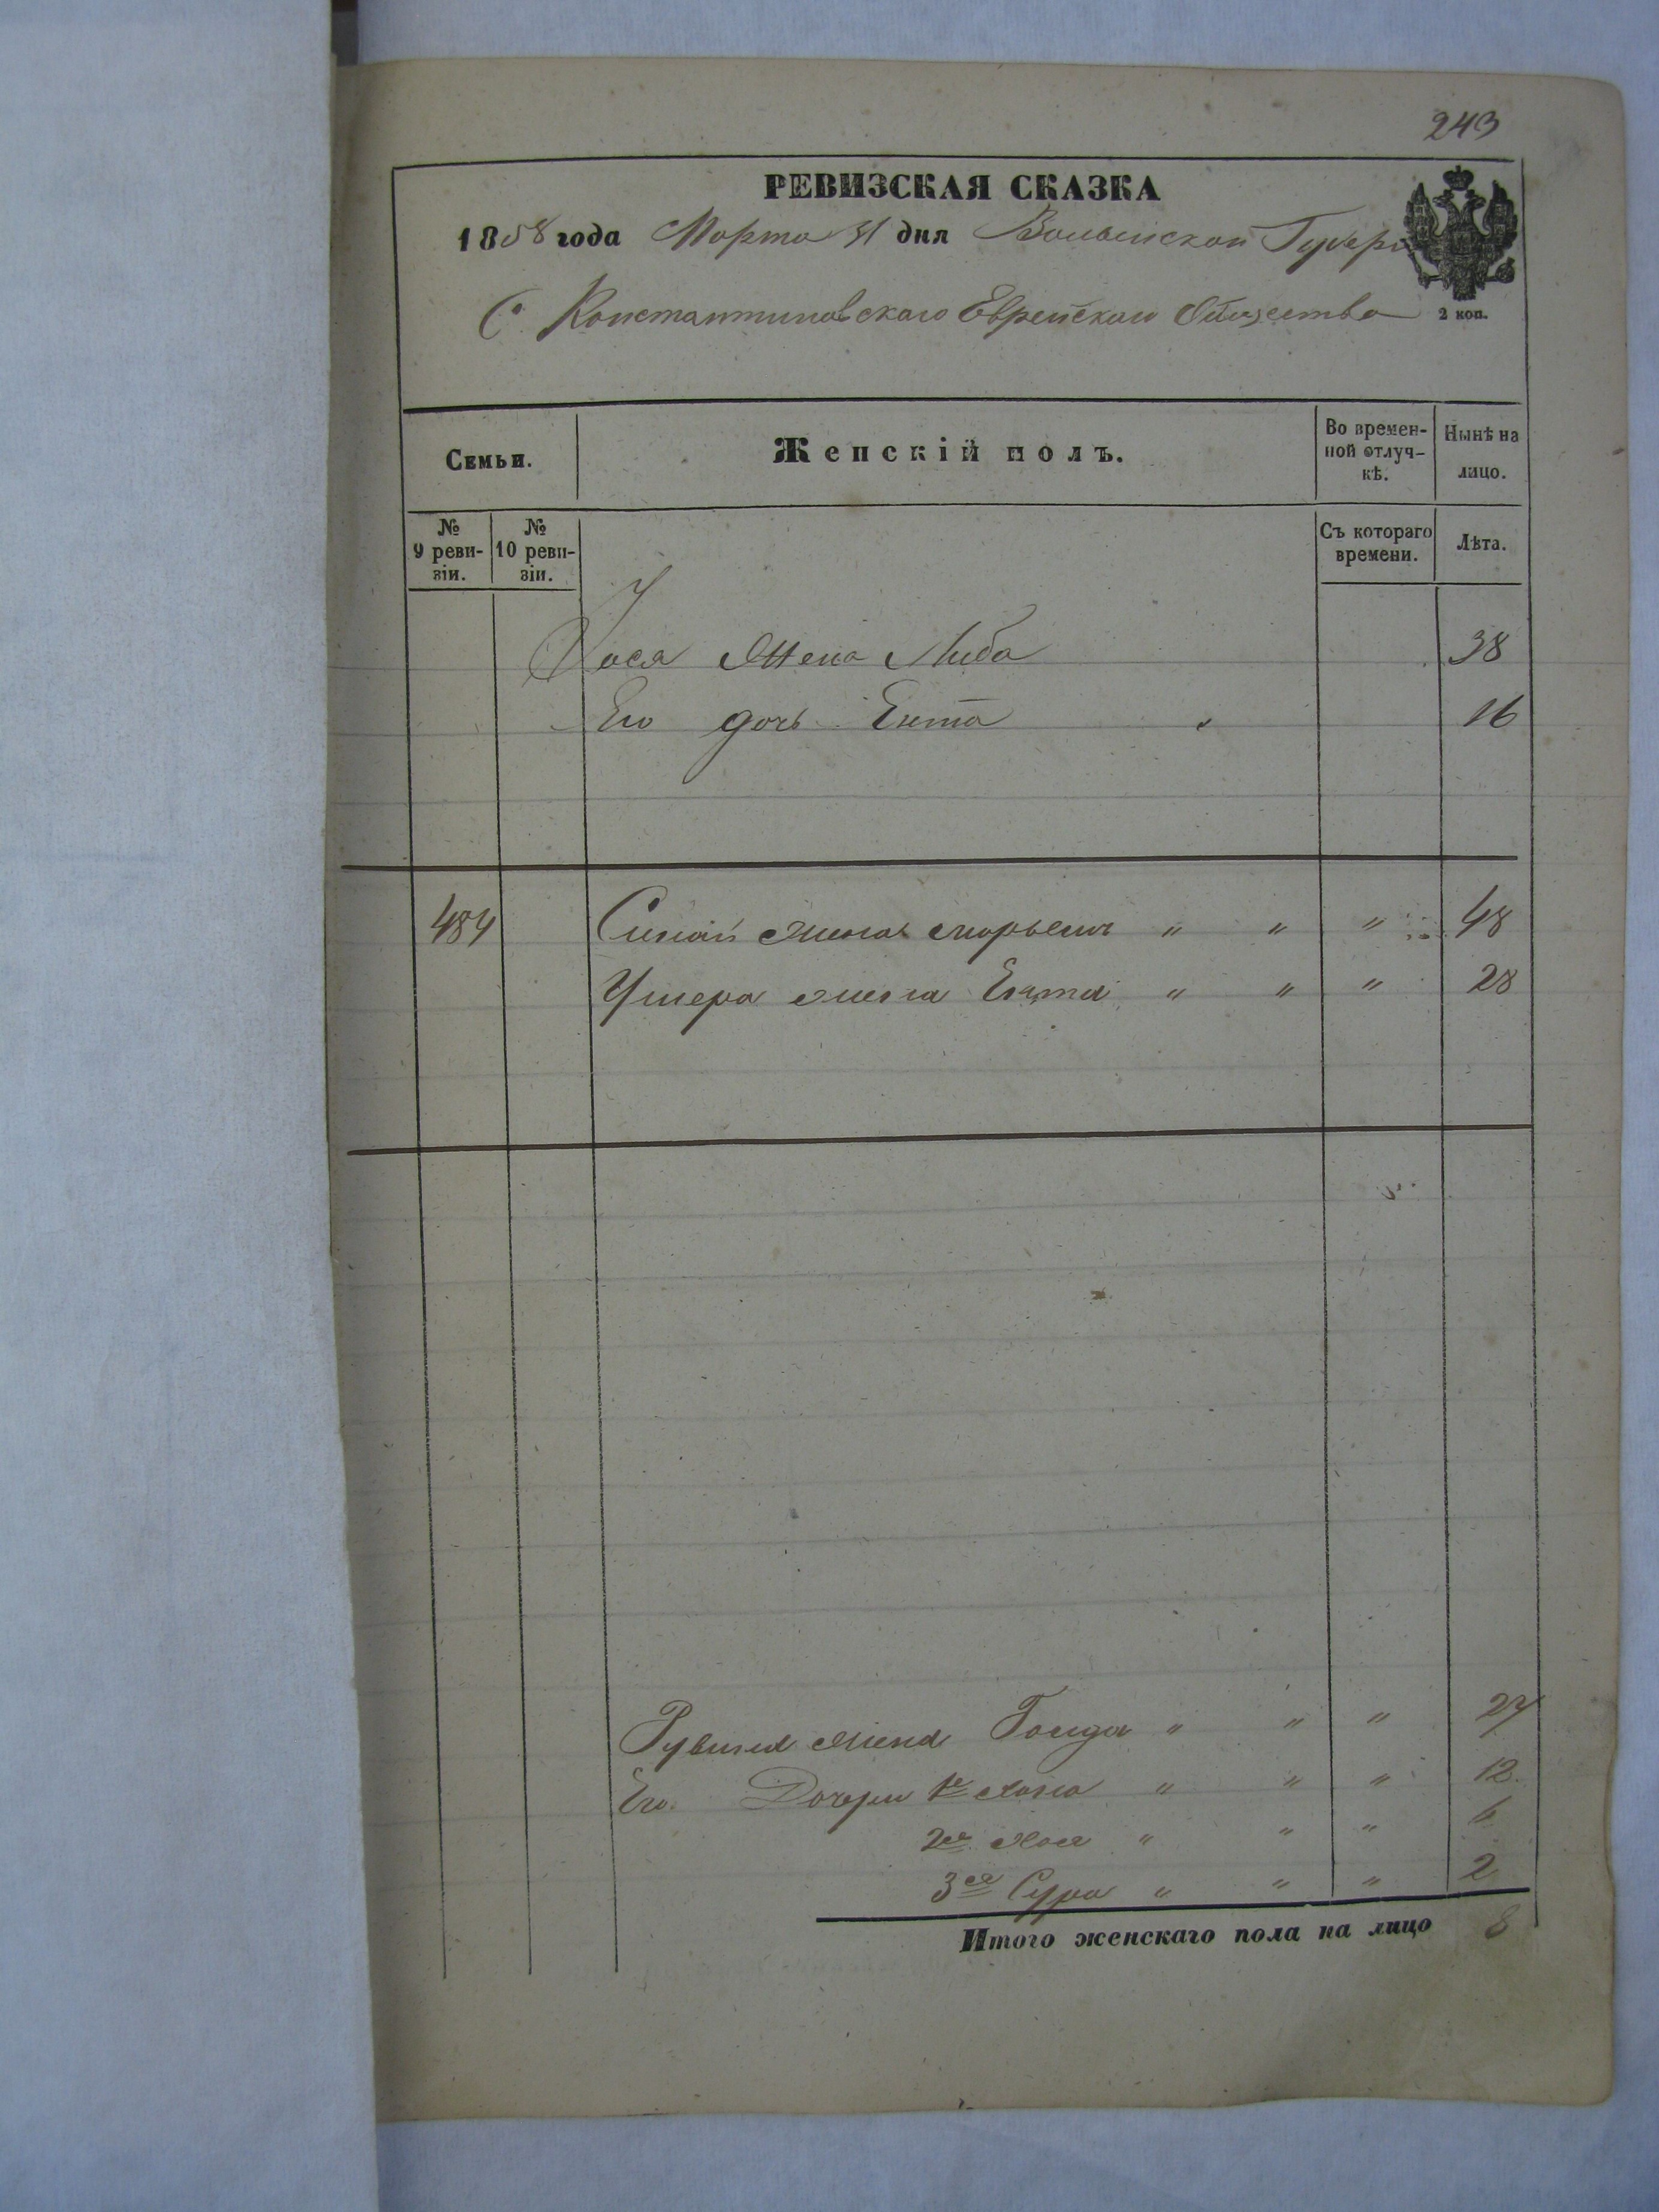 243
РЕВИЗСКАЯ СКАЗКА
1858 года Марта 31 дня Волынской Губерн
С. Константиновскаго Еврейскаго Общества 2 коп.
Семьи. Женскій полъ. Во времен-ной отлуч-кѣ. Нынѣ на лицо.
№ 9 реви-зіи. № 10 реви-зіи. Съ котораго времени. Лѣта.
Жена Либа 38
Его дочь Ента 16
484 жена " " " 48
Ушера жена Ента " " " 28
Рувина жена " " " 27
Его Дочери 1я " " " 12
2я " " " 6
3я Сура " " " 2
Итого женскаго пола на лицо 8